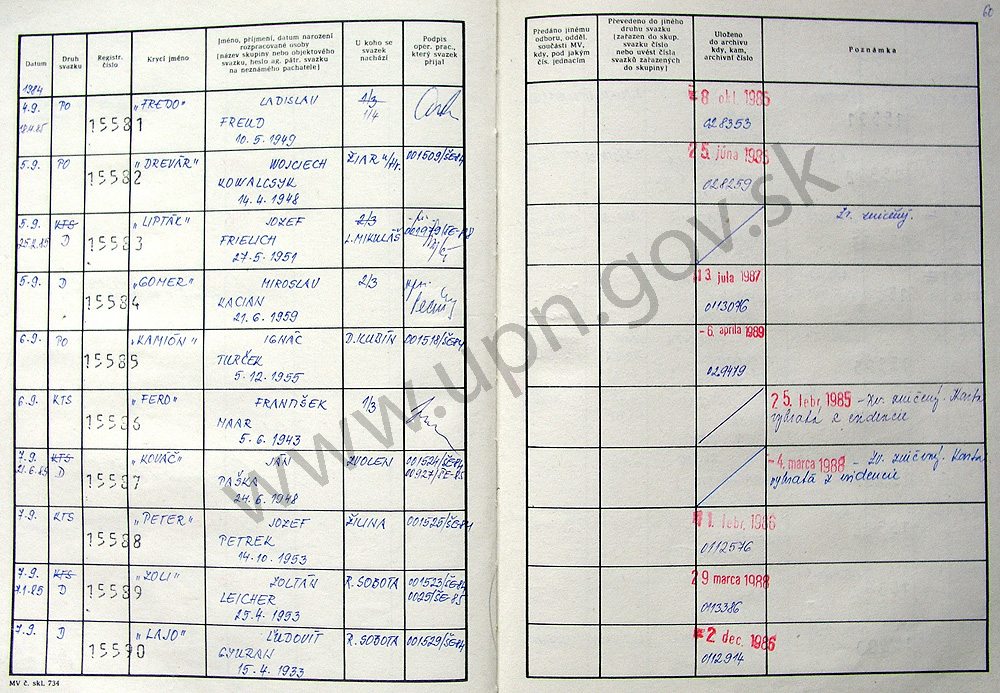 60
Datum
Druh svazku
Registr. číslo
Krycí jméno
Jméno, příjmení, datum narození
rozpracované osoby
(název skupiny nebo objektového
svazku, heslo ag. pátr. svazku
na neznámého pachatele)
U koho se
svazek
nachází
Podpis
oper. prac.,
který svazek
přijal
Předáno jinému
odboru, odděl.
součásti MV,
kdy, pod jakým
čís. jednacím
Převedeno do jiného
druhu svazku
(zařazen do skup.
svazku číslo
nebo uvést čísla
svazků zařazených
do skupiny)
Uloženo
do archivu
kdy, kam,
archivní číslo
Poznámka
1984
4.9. PO 15581 "FREDO" LADISLAV 1/3
1/4
FREUD
10.5.1949
8 okt. 1985
028353
5.9. PO 15582 "DREVÁR" WOJCIECH ŽIAR n/Hr. 001509/ŠE-84
KOWALCSYK
14.4.1948
25. júna 1985
028259
5.9. KTS 15583 "LIPTÁK" JOZEF 2/3
D FRIELICH L.MIKULÁŠ
27.5.1951
Zv. zničený.
5.9. D 15584 "GOMER" MIROSLAV 2/3
KACIAN
21.6.1959
13. jula 1987
0113076
6.9. PO 15585 "KAMIÓN" IGNÁC D.KUBÍN 001518/ŠE-84
TURČEK
5.12.1955
-6. apríla 1989
029479
6.9. KTS 15586 "FERO" FRANTIŠEK 1/3
MAAR
5.6.1943
25. febr. 1985 - Zv. zničený. Karta
vybratá z evidencie
7.9. KTS 15587 "KOVÁČ" JÁN ZVOLEN 001524/ŠE-84
21.6.85 D PAŠKA 00927/ŠE-85
24.6.1948
-4. marca 1988 - Zv. zničený. Karta
vybratá z evidencie
7.9. KTS 15588 "PETER" JOZEF ŽILINA 001525/ŠE-84
PETREK
14.10.1953
11. febr. 1986
0112576
7.9. KTS 15589 "ZOLI" ZOLTÁN R.SOBOTA 001523/ŠE-84
7.1.85 D LEICHER 0025/ŠE-85
25.4.1953
29 marca 1988
0113386
7.9. D 15590 "LAJO" ĽUDOVÍT R.SOBOTA 001529/ŠE-84
GYURAN
15.4.1933
2 dec. 1986
0112914
MV č. skl. 734
www.upn.gov.sk